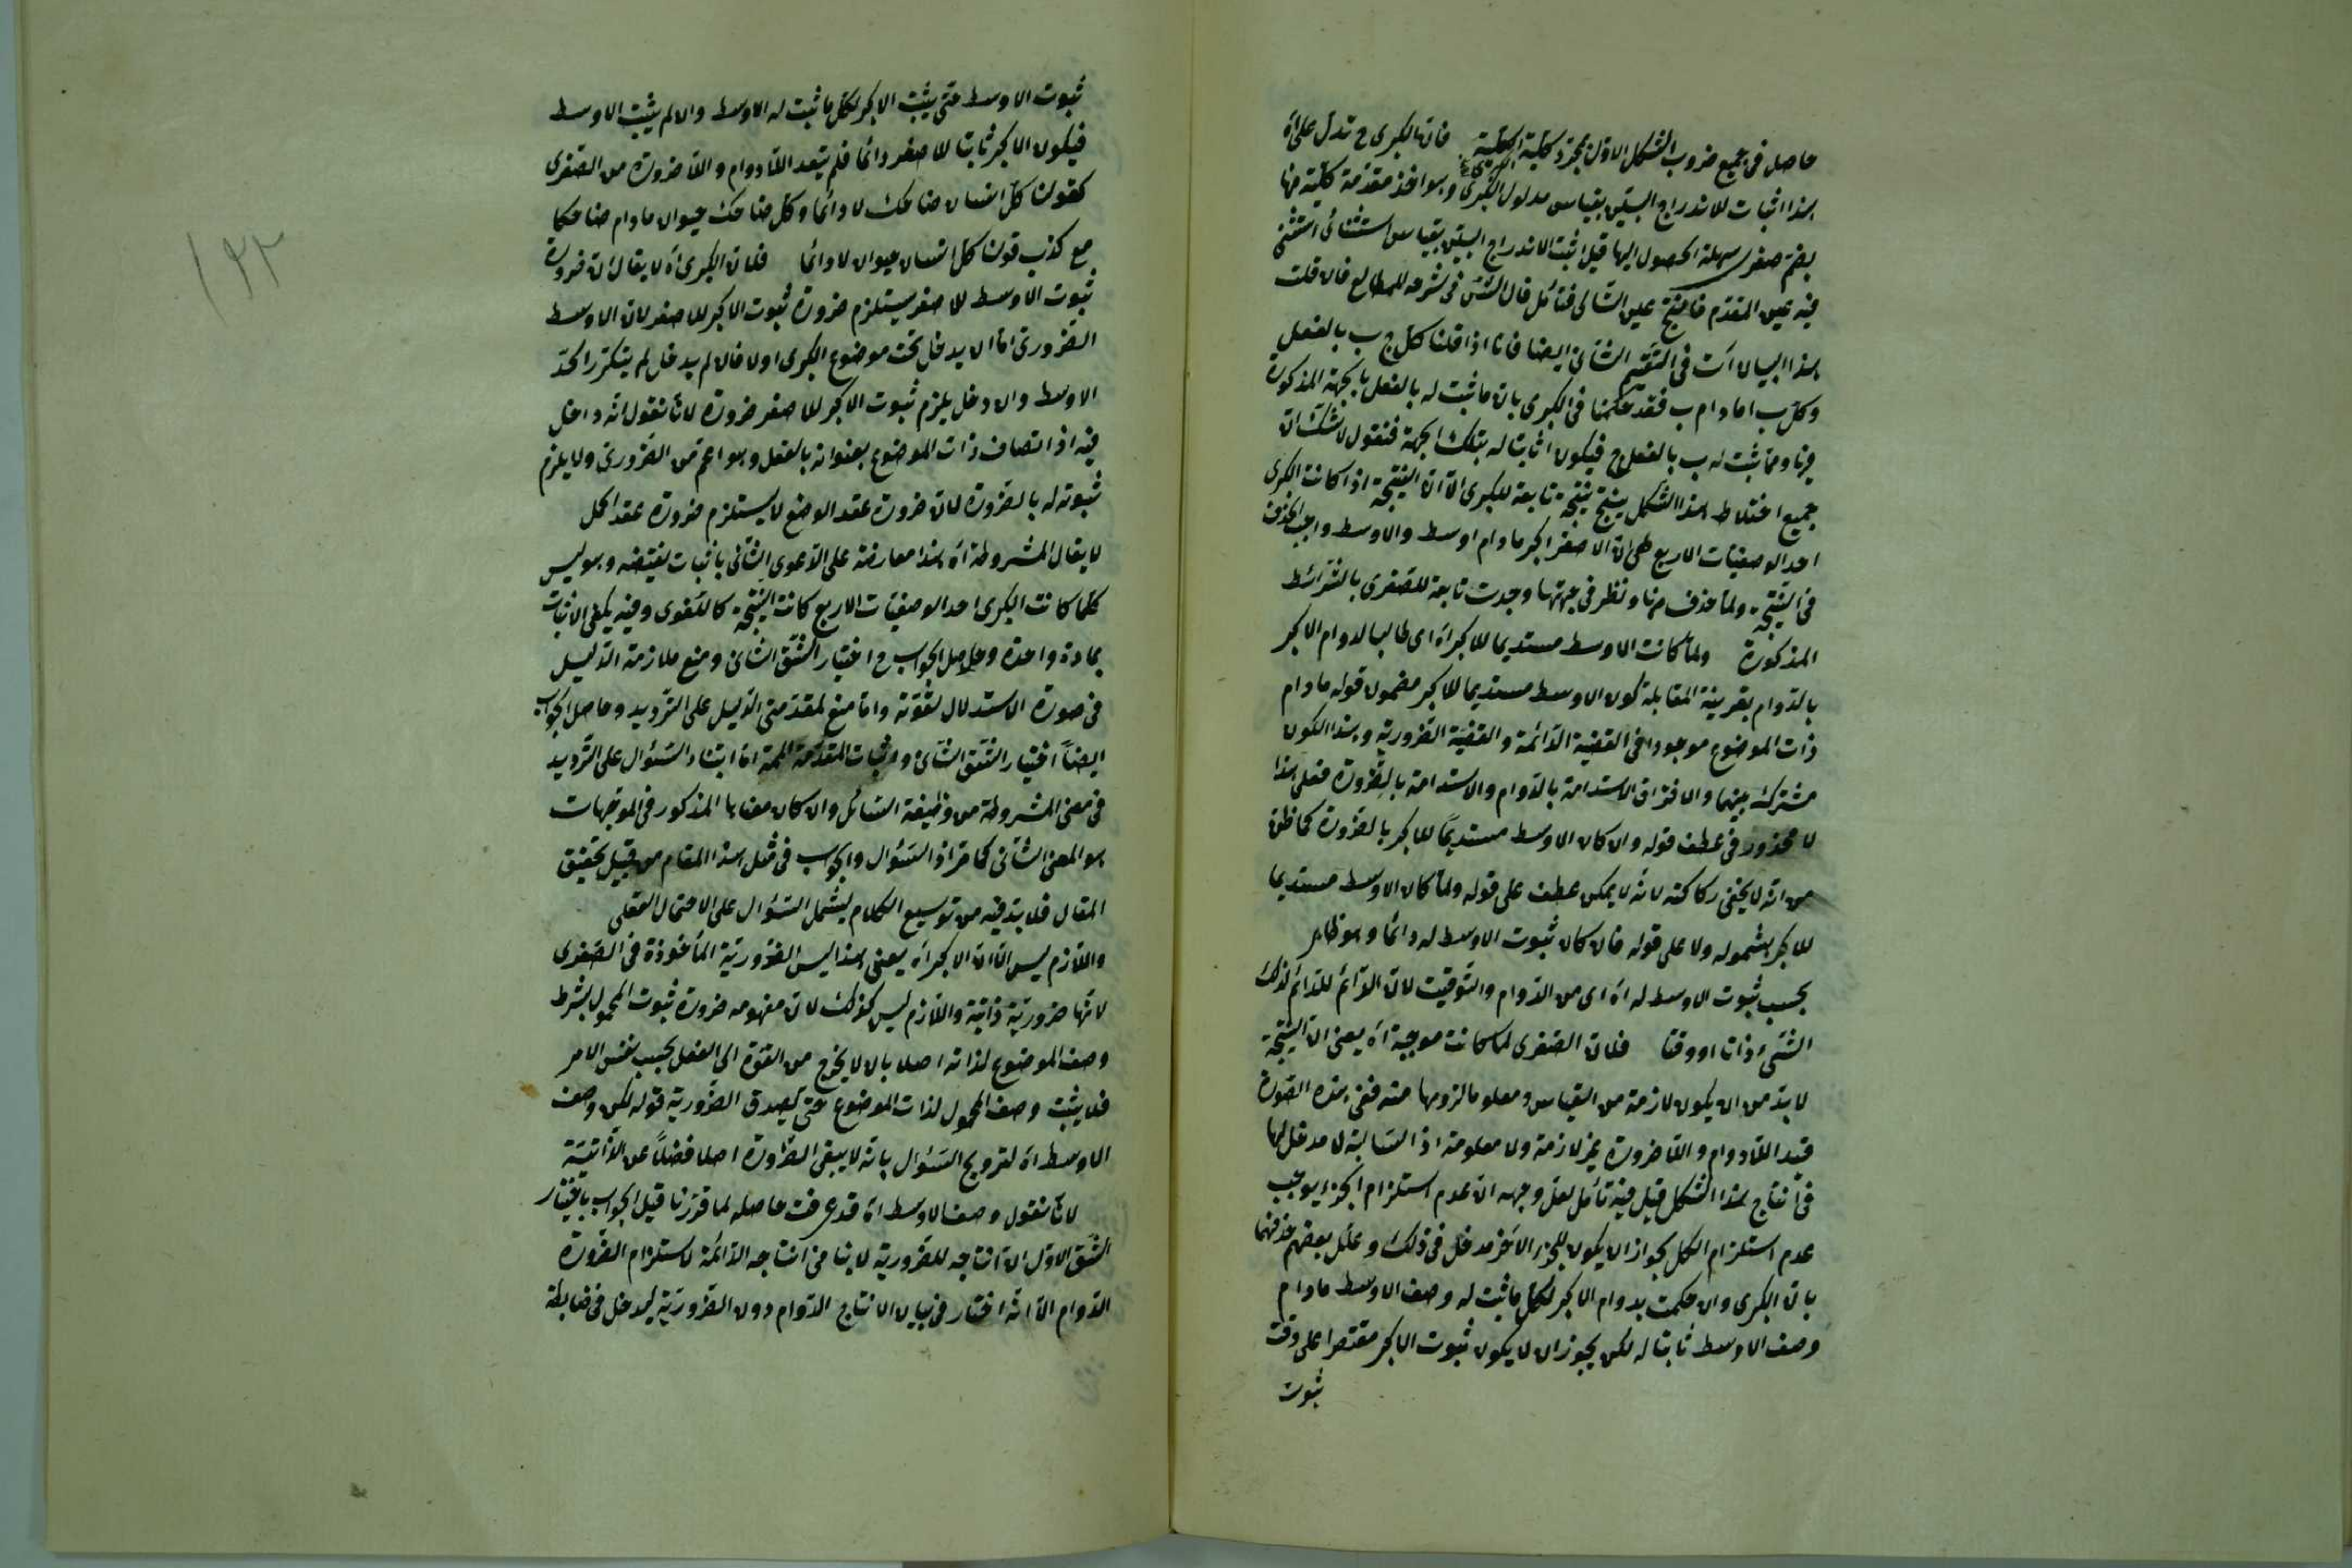 حاصل فى جميع ضروب الشكل الاوّل بمجرّد كلّية الكبرى فانّ الكبرى ح تدلّ على اه
هذا اثبات للاندراج البيّن بقياس مدلول الكبرى وهو اخذ مقدّمة كلّية منها
بضمّ صغرى سهلة الحصول اليها قيل اثبت الاندراج البيّن بقياس استثنائى استثنى
فيه عين المقدّم فانتج عين التّالى فتأمّل قال الشّ فى شرحه للمطالع فان قلت
هذا البيان آت فى القسم الثّانى ايضا فانّا اذا قلنا كلّ ج ب بالفعل
وكلّ ب ا مادام ب فقد حكمنا فى الكبرى بانّ ما ثبت له بالفعل بالجهة المذكورة
وممّا ثبت له ب بالفعل ج فيكون ا ثابتا له بتلك الجهة فنقول لا شكّ انّ
جميع اختلاط هذا الشكل ينتج نتيجة تابعة للكبرى الّا انّ النتيجة اذا كانت الكبرى
احد الوصفيّات الاربع هى انّ الاصغر اكبر مادام اوسط والاوسط واجب الحذف
فى النّتيجة ولمّا حذف منها ونظر فى جهتها وجدت تابعة للصّغرى بالشّرائط
المذكورة ولمّا كانت الاوسط مستديما للاكبر اه اى طالبا لدوام الاكبر
بالدّوام بقرينة المقابلة كون الاوسط مستديما للاكبر مضمون قوله مادام
ذات الموضوع موجودا فى القضيّة الدّائمة والقضيّة الضّروريّة وهذا الكون
مشترك بينهما والافتراق الاستدامة بالدّوام والاستدامة بالضّرورة فعلى هذا
لا محذور فى عطف قوله وان كان الاوسط مستديمًا للاكبر بالضّرورة كما ظنّ
من انّه لا يخفى ركاكته لانّه لا يمكن عطف على قوله ولمّا كان الاوسط مستديما
للاكبر بشموله ولا على قوله فان كان ثبوت الاوسط له دائمًا وهو ظاهر
بحسب ثبوت الاوسط له اه اى من الدّوام والتّوقيت لانّ الدّائم للدّائم لذلك
الشّىء ذات او وقتا فلانّ الصّغرى لمّا كانت موجبة اه يعنى انّ النّتيجة
لا بدّ من ان يكون لازمة من القياس ومعلوما لزومها منه ففى هذه الصّورة
قيد اللّادوام واللّاضرورة غير لازمة ولا معلومة اذ السّالبة لا مدخل لها
فى انتاج هذا الشكل قيل فيه تأمّل لعلّ وجهه انّ عدم استلزام الجزء يوجب
عدم استلزام الكلّ بجواز ان يكون للجزء الآخر مدخل فى ذلك وعلّل بعضهم حذفهما
بانّ الكبرى وان حكمت بدوام الاكبر لكلّ ما ثبت له وصف الاوسط مادام
وصف الاوسط ثابتا له لكن يجوز ان لا يكون ثبوت الاكبر مقتصرا على وقت
ثبوت
١٢٢
ثبوت الاوسط حتى يثبت الاكبر لكلّ ما ثبت له الاوسط وان لم يثبت الاوسط
فيكون الاكبر ثابتا للاصغر دائما فلم يتعد اللّادوام واللّاضرورة من الصّغرى
كقولنا كلّ انسان ضاحك لا دائمًا وكلّ ضاحك حيوان مادام ضاحكا
مع كذب قولنا كلّ انسان حيوان لا دائما فلانّ الكبرى اه لا يقال انّ ضرورة
ثبوت الاوسط للاصغر يستلزم ضرورة ثبوت الاكبر للاصغر لانّ الاوسط
الضّرورى امّا ان يدخل تحت موضوع الكبرى او لا فان لم يدخل لم يتكرّر الحدّ
الاوسط وان دخل يلزم ثبوت الاكبر للاصغر ضرورة لانّا نقول انّه داخل
فيه اذ اتصاف ذات الموضوع بعنوانه بالفعل وهو اعمّ من الضّرورى ولا يلزم
ثبوته له بالضّرورة لانّ ضرورة عقد الوضع لا يستلزم ضرورة عقد الحمل
لا يقال المشروطة اه هذا معارضة على الدّعوى الثّانى باثبات نقيضه وهو ليس
كلّما كانت الكبرى احد الوصفيّات الاربع كانت النّتيجة كالصّغرى وفيه يكفى الاثبات
بمادة واحدة وحاصل الجواب ح اختيار الشّقّ الثّانى ومنع ملازمة الدّليل
فى صورة الاستدلال لقوّته وامّا منع لمقدّمتى الدّليل على التّرديد وحاصل الجواب
ايضاً اختيار الشّقّ الثّانى واثبات المقدّمة الممنوعة امّا ابتناء السّؤال على التّرديد
فى معنى المشروطة من وظيفة السّائل وان كان معناها المذكور فى الموجّهات
هو المعنى الثّانى كما مرّ اذ السّؤال والجواب فى مثل هذا المقام من قبيل تحقيق
المقال فلا بدّ فيه من توسيع الكلام ليشمل السّؤال على الاحتمال العقلى
واللّازم ليس الّا انّ الاكبر اه يعنى هذا ليس الضّروريّة المأخوذة فى الصّغرى
لانّها ضروريّة ذاتيّة واللّازم ليس كذلك لانّ مفهومه ضرورة ثبوت المحمول بشرط
وصف الموضوع لذاته اصلا بان لا يخرج من القوّة الى الفعل بحسب نفس الامر
فلا يثبت وصف المحمول لذات الموضوع حتى يصدق الضّروريّة قوله لكن وصف
الاوسط اه لترويج السّؤال بانّه لا يبقى الضّرورة اصلا فضلًا عن الذّاتيّة
لانّا نقول وصف الاوسط اه قد عرفت حاصله لما قرّرنا قيل الجواب باختيار
الشّقّ الاوّل انّ انتاجه للضّروريّة لا ينافى انتاجه الدّائمة لاستلزام الضّرورة
الدّوام الّا انّه اختار فى بيان الانتاج الدّوام دون الضّروريّة ليدخل فى ضابطة